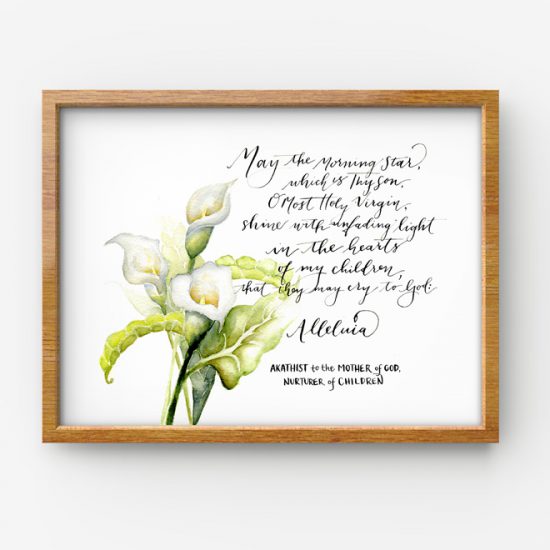 May the Morning Star,
which is Thy Son,
O Most Holy Virgin,
shine with unfading light
in the hearts
of my children,
that they may cry to God:
Alleluia
AKATHIST to the MOTHER of GOD,
NURTURER of CHILDREN